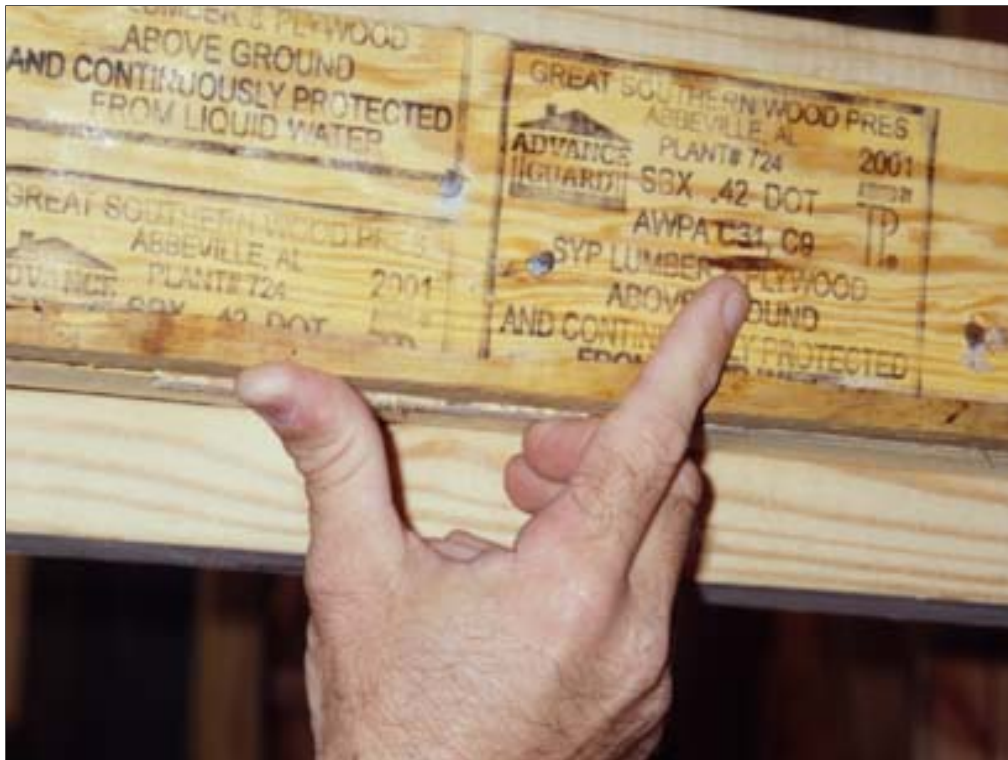 LUMBER & PLYWOOD
ABOVE GROUND
AND CONTINUOUSLY PROTECTED
FROM LIQUID WATER
GREAT SOUTHERN WOOD PRES
ABBEVILLE, AL
ADVANCE
PLANT# 724
2001
SBX .42 DOT
GREAT SOUTHERN WOOD PRES
ABBEVILLE, AL
ADVANCE
GUARD
PLANT# 724
2001
SBX .42 DOT
TP.
AWPA C31, C9
SYP LUMBER PLYWOOD
ABOVE
AND PROTECTED
FROM